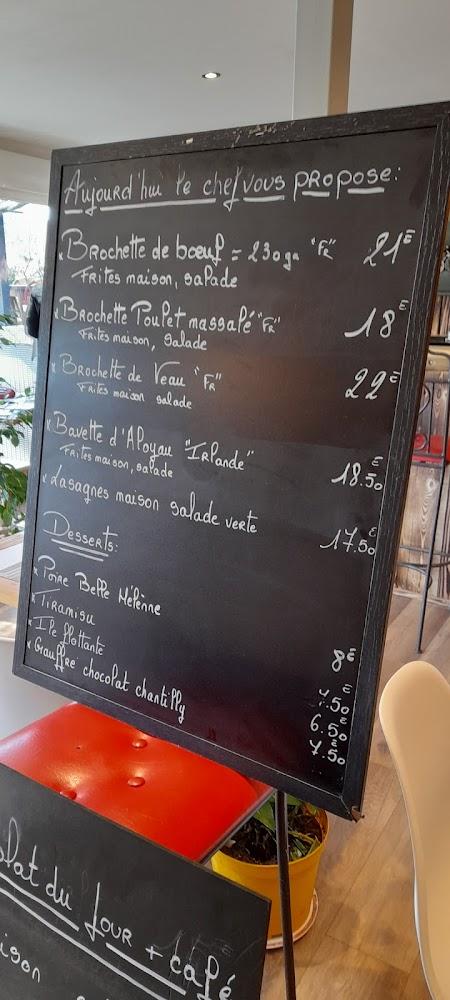 Aujourd'hui le chef vous propose:
x Brochette de bœuf = 230gr "FR" 21€
Frites maison, salade
x Brochette Poulet massalé "FR" 18€
Frites maison, salade
x Brochette de Veau "FR" 22€
Frites maison salade
x Bavette d'Aloyau "Irlande" 18.50€
Frites maison, salade
x Lasagnes maison salade verte 17.50€
Desserts:
x Poire Belle Hélènne 8€
x Tiramisu 7.50€
x Ile flottante 6.50€
x Gauffre chocolat chantilly 7.50€
plat du Jour + café